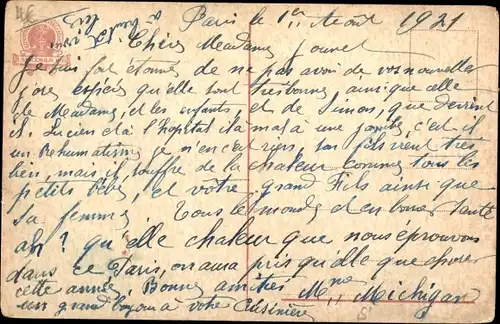 Paris le 1er Août 1921
Chère Madame
Je suis fort étonné de ne pas avoir de vos nouvelles
j'ose espérer qu'elle sont très bonne, ainsi que celle
de Madame, et les enfants, et de Simon, que devient
il. Lucien est à l'hopital il a mal a une jambe, c'est-il
un Rehumatisme je n'en sait rien, son fils vient très
bien, mais il souffre de la chaleur comme tous les
petits bébés, et vôtre grand Fils ainsi que
sa femme. Tous le monde est en bonne Santé
ah? qu'elle chaleur que nous éprouvons
dans ce Paris, on aura pris quelque chose
cette année. Bonnes amitiés Mme Michigan
un grand bonjour à votre Cuisinière